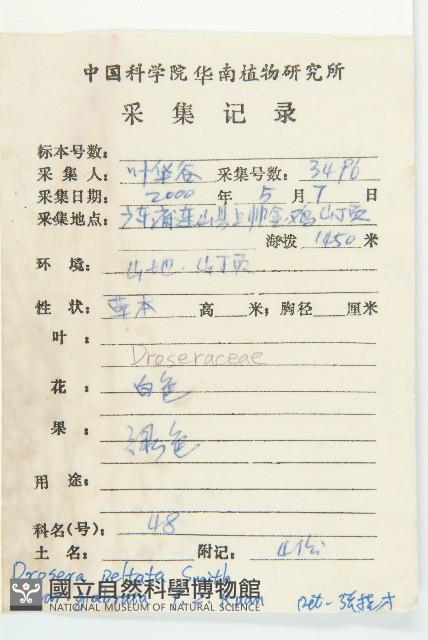 中国科学院华南植物研究所
采集记录
标本号数:
采集人: 叶华谷 采集号数: 3496
采集日期: 2000年5月7日
采集地点: 广东省连山县上帅金鸡山顶
海拨 1450 米
环境: 山地.山顶
性状: 草本 高 米; 胸径 厘米
叶:
Droseraceae
花: 白色
果: 绿色
用途:
科名(号): 48
土名: 附记:
Drosera peltata Smith
var. glabrata Y.Z. Ruan
Det.
國立自然科學博物館
NATIONAL MUSEUM OF NATURAL SCIENCE